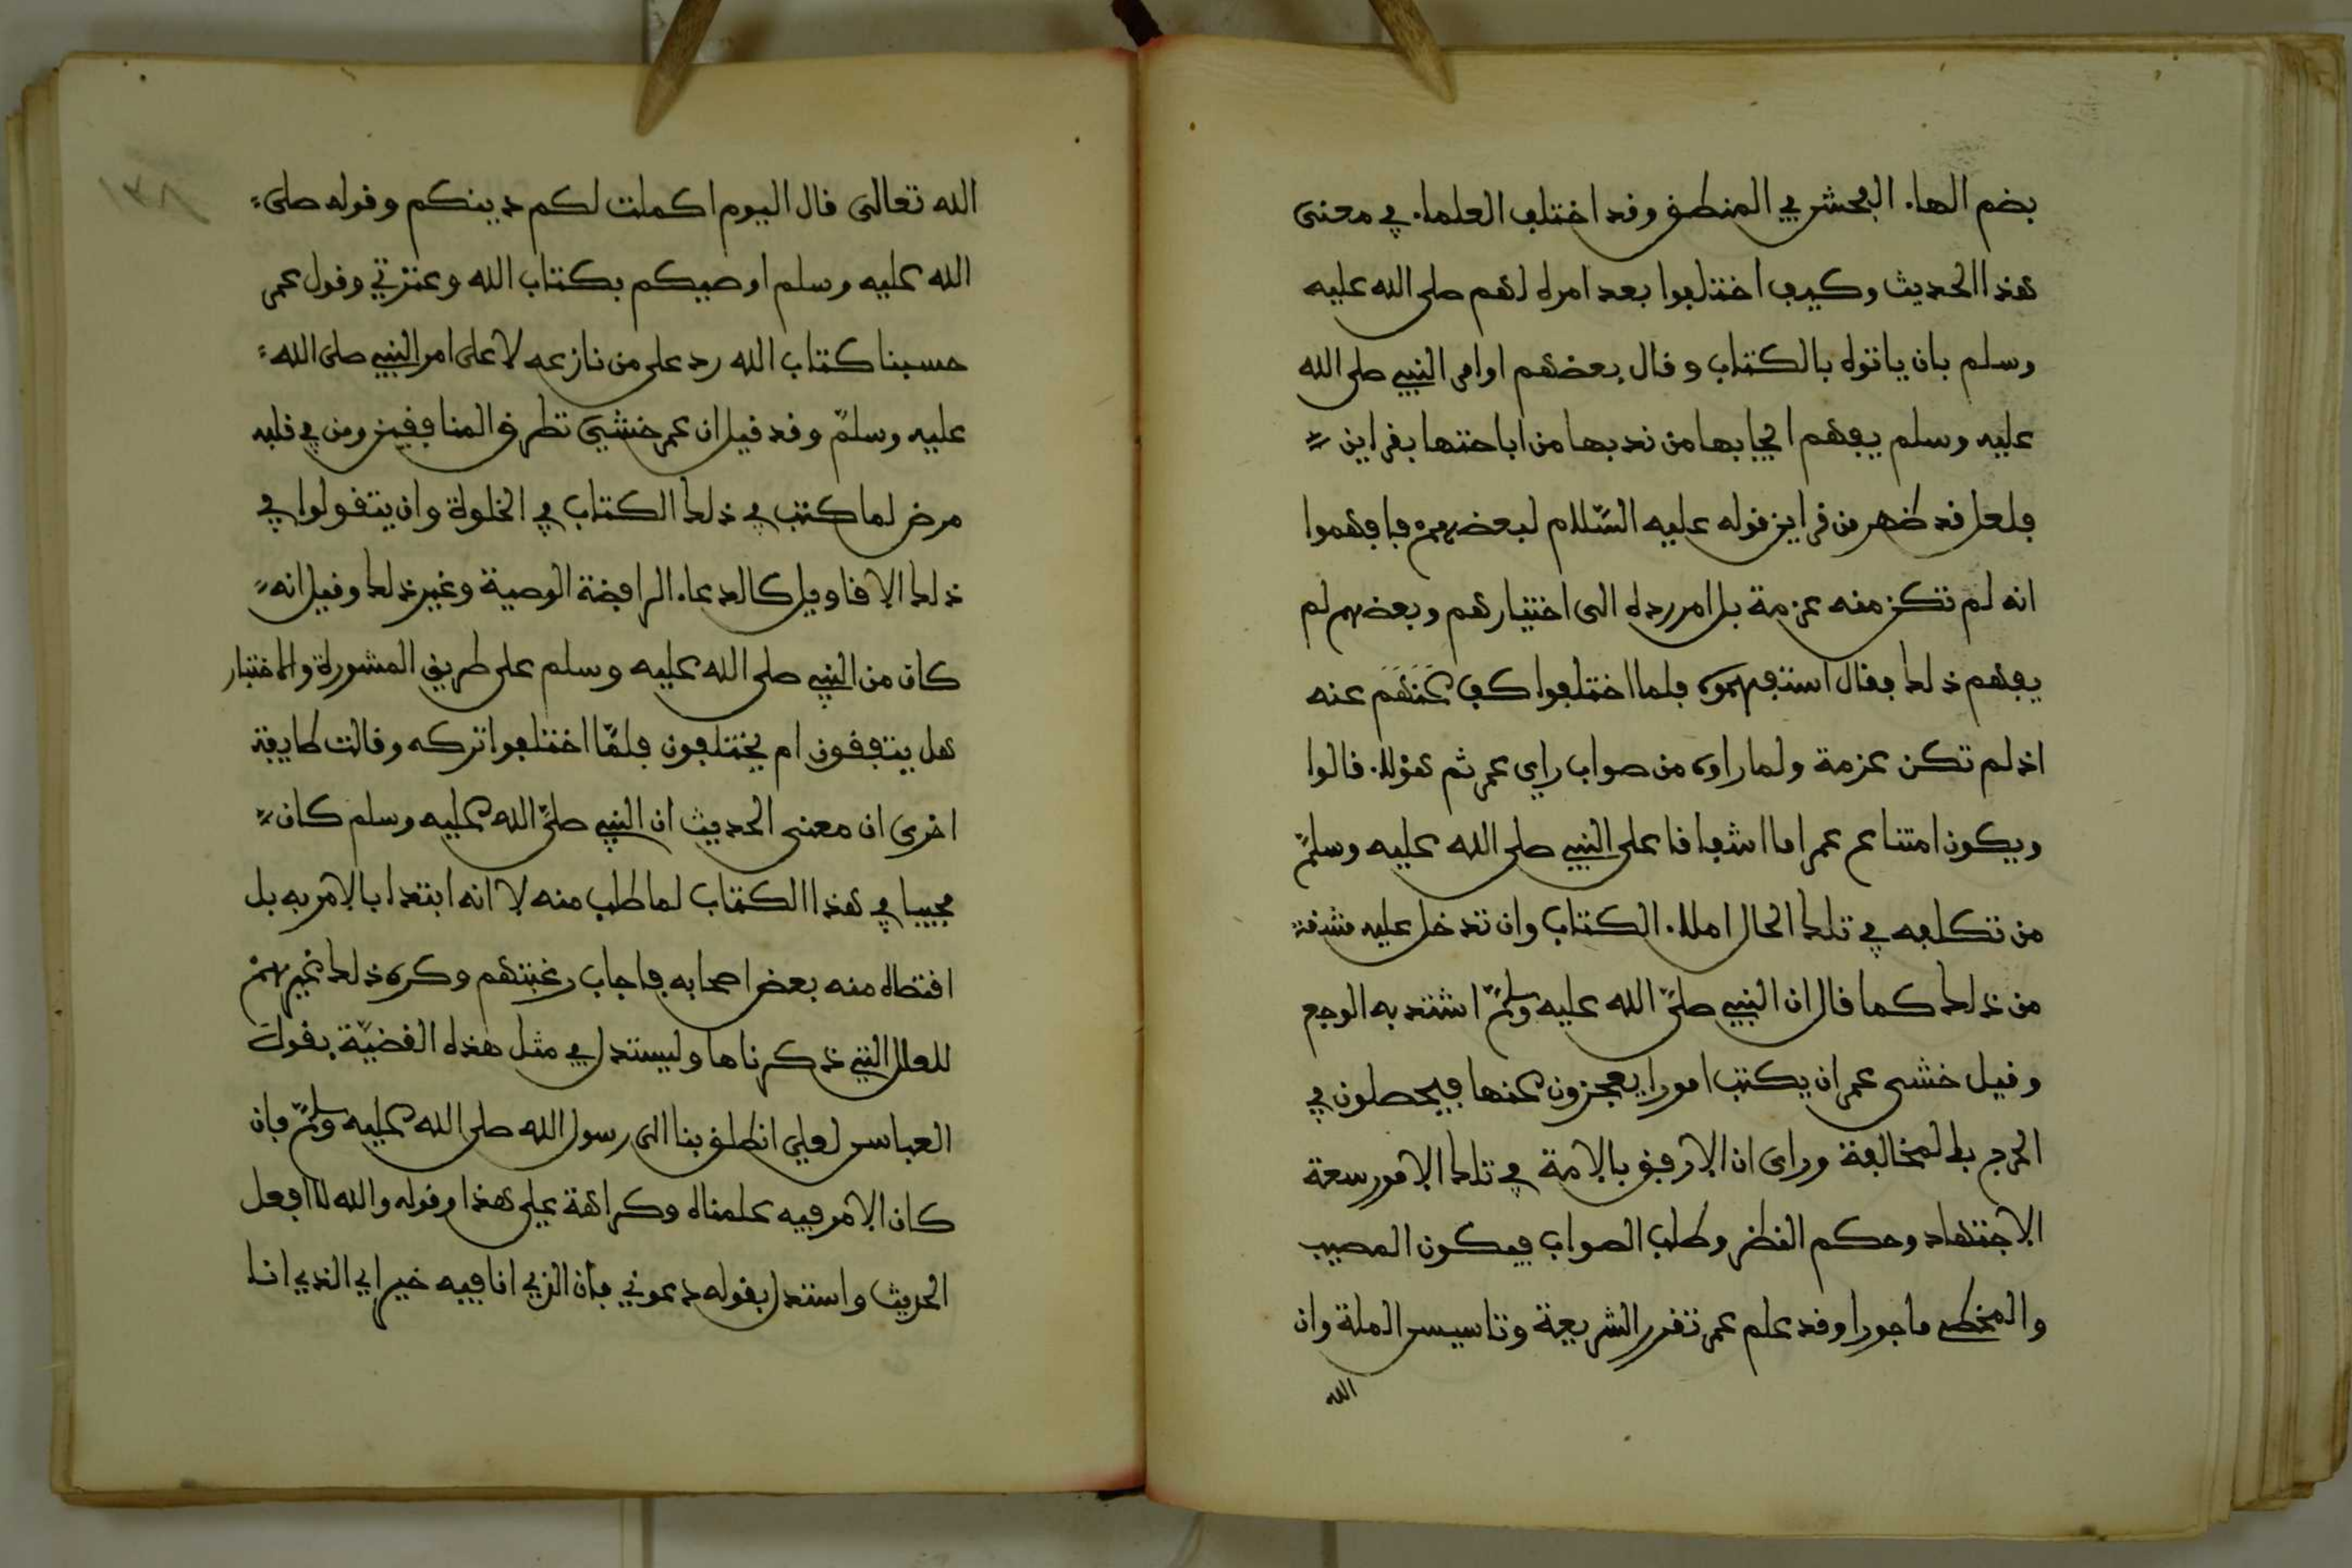 بضم الهاء الفحش في المنطق وقد اختلف العلماء في معنى
هذا الحديث وكيف اختلفوا بعد امره لهم صلى الله عليه
وسلم بان ياتوه بالكتاب وقال بعضهم اوامر النبيي صلى الله
عليه وسلم يفهم ايجابها من ندبها من اباحتها بقراين
فلعل قد ظهر من قراين قوله عليه السّلام لبعضهم فافهموا
انه لم تكن منه عزمة بل امر رده الى اختيارهم وبعضهم لم
يفهم ذلك فقال استفهموه فلما اختلفوا كف عَنْهُم عنه
اذ لم تكن عزمة ولما راوه من صواب راي عمر ثم هؤلاء قالوا
ويكون امتناع عمر اما اشفاقا على النبيي صلى الله عليه وسلمّ
من تكلفه في تلك الحال املاء الكتاب وان تدخل عليه مشقة
من ذلك كما قال ان النبيي صلىّ الله عليه وسلمّ اشتد به الوجع
وقيل خشى عمر ان يكتب امورا يعجزون عنها فيحصلون في
الحرج بالمخالفة وراى ان الارفق بالامة في تلك الامور سعة
الاجتهاد وحكم النظر وطلب الصواب فيكون المصيب
والمخطي ماجورا وقد علم عمر تقرر الشريعة وتاسيس الملة وان
الله
١٣٨
الله تعالى قال اليوم اكملت لكم دينكم وقوله صلى
الله عليه وسلم اوصيكم بكتاب الله وعترتي وقول عمر
حسبنا كتاب الله رد على من نازعه لا على امر النبيي صلى الله
عليه وسلمّ وقد قيل ان عمر خشي تطرق المنافقين ومن في قلبه
مرض لما كتب في ذلك الكتاب في الخلوة وان يتقولوا في
ذلك الاقاويل كالدعاء الرافضة الوصية وغير ذلك وقيل انه
كان من النبيي صلى الله عليه وسلم على طريق المشورة والاختبار
هل يتفقون ام يختلفون فلمّا اختلفوا تركه وقالت طايفة
اخرى ان معنى الحديث ان النبيي صلىّ الله عليه وسلم كان
مجيبا في هذا الكتاب لما طلب منه لا انه ابتدا بالامر به بل
اقتضاه منه بعض اصحابه فاجاب رغبتهم وكره ذلك غيرهم
للعلل التي ذكرناها وليستدل في مثل هذه القضيّة بقول
العباس لعلي انطلق بنا الى رسول الله صلى الله عليه وسلمّ فان
كان الامر فيه علمناه وكراهة علي هذا وقوله والله لا افعل
الحديث واستدل بقوله دعوني فان الذي انا فيه خير اي الذي انا